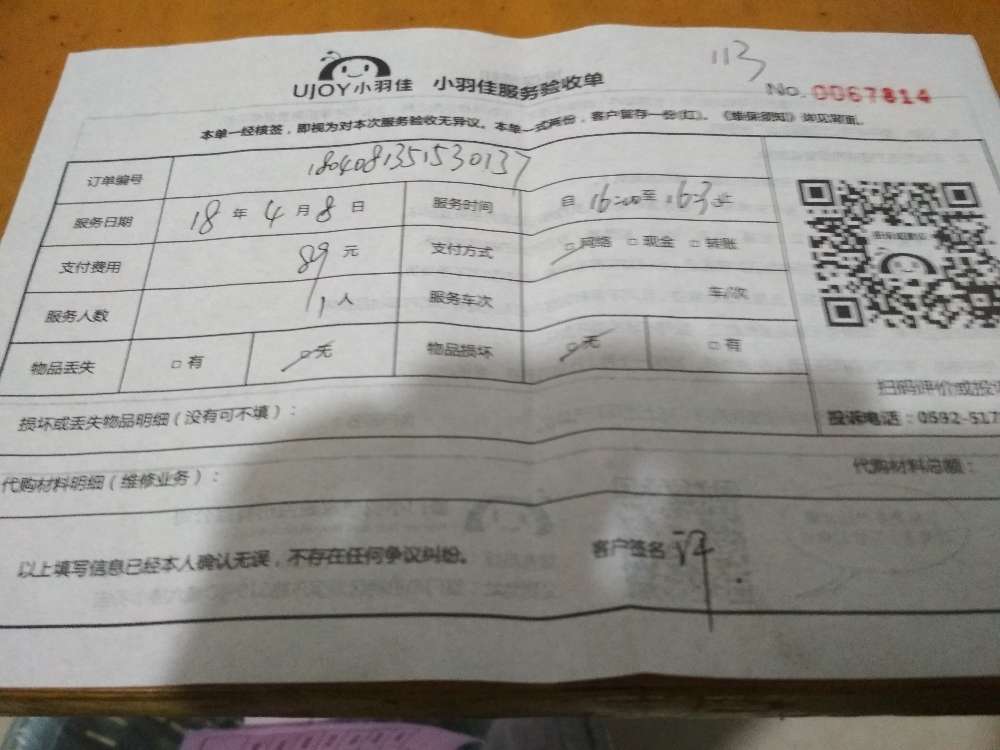 113
UJOY小羽佳 小羽佳服务验收单
No. 0067814
本单一经核签，即视为对本次服务验收无异议。本单一式两份，客户留存一份(红)。《维保须知》详见背面。
订单编号 1804081351530137
服务日期 18 年 4 月 8 日 服务时间 自 16:00 至
支付费用 89 元 支付方式 □网络 □现金 □转账
服务人数 1 人 服务车次 车/次
物品丢失 □有 □无 物品损坏 □无 □有
扫码评价或投
损坏或丢失物品明细（没有可不填）：
投诉电话：0592-517
代购材料明细（维修业务）：
代购材料总额：
以上填写信息已经本人确认无误，不存在任何争议纠纷。 客户签名：许